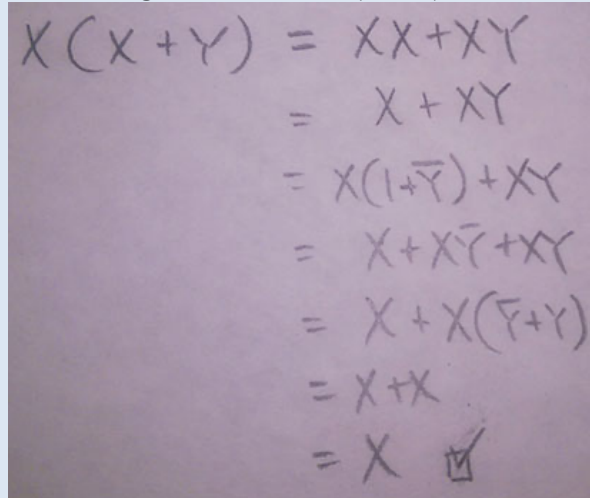 X(X+Y) = XX+XY
= X+XY
= X(1+Ȳ)+XY
= X+XȲ+XY
= X+X(Ȳ+Y)
= X+X
= X ☑